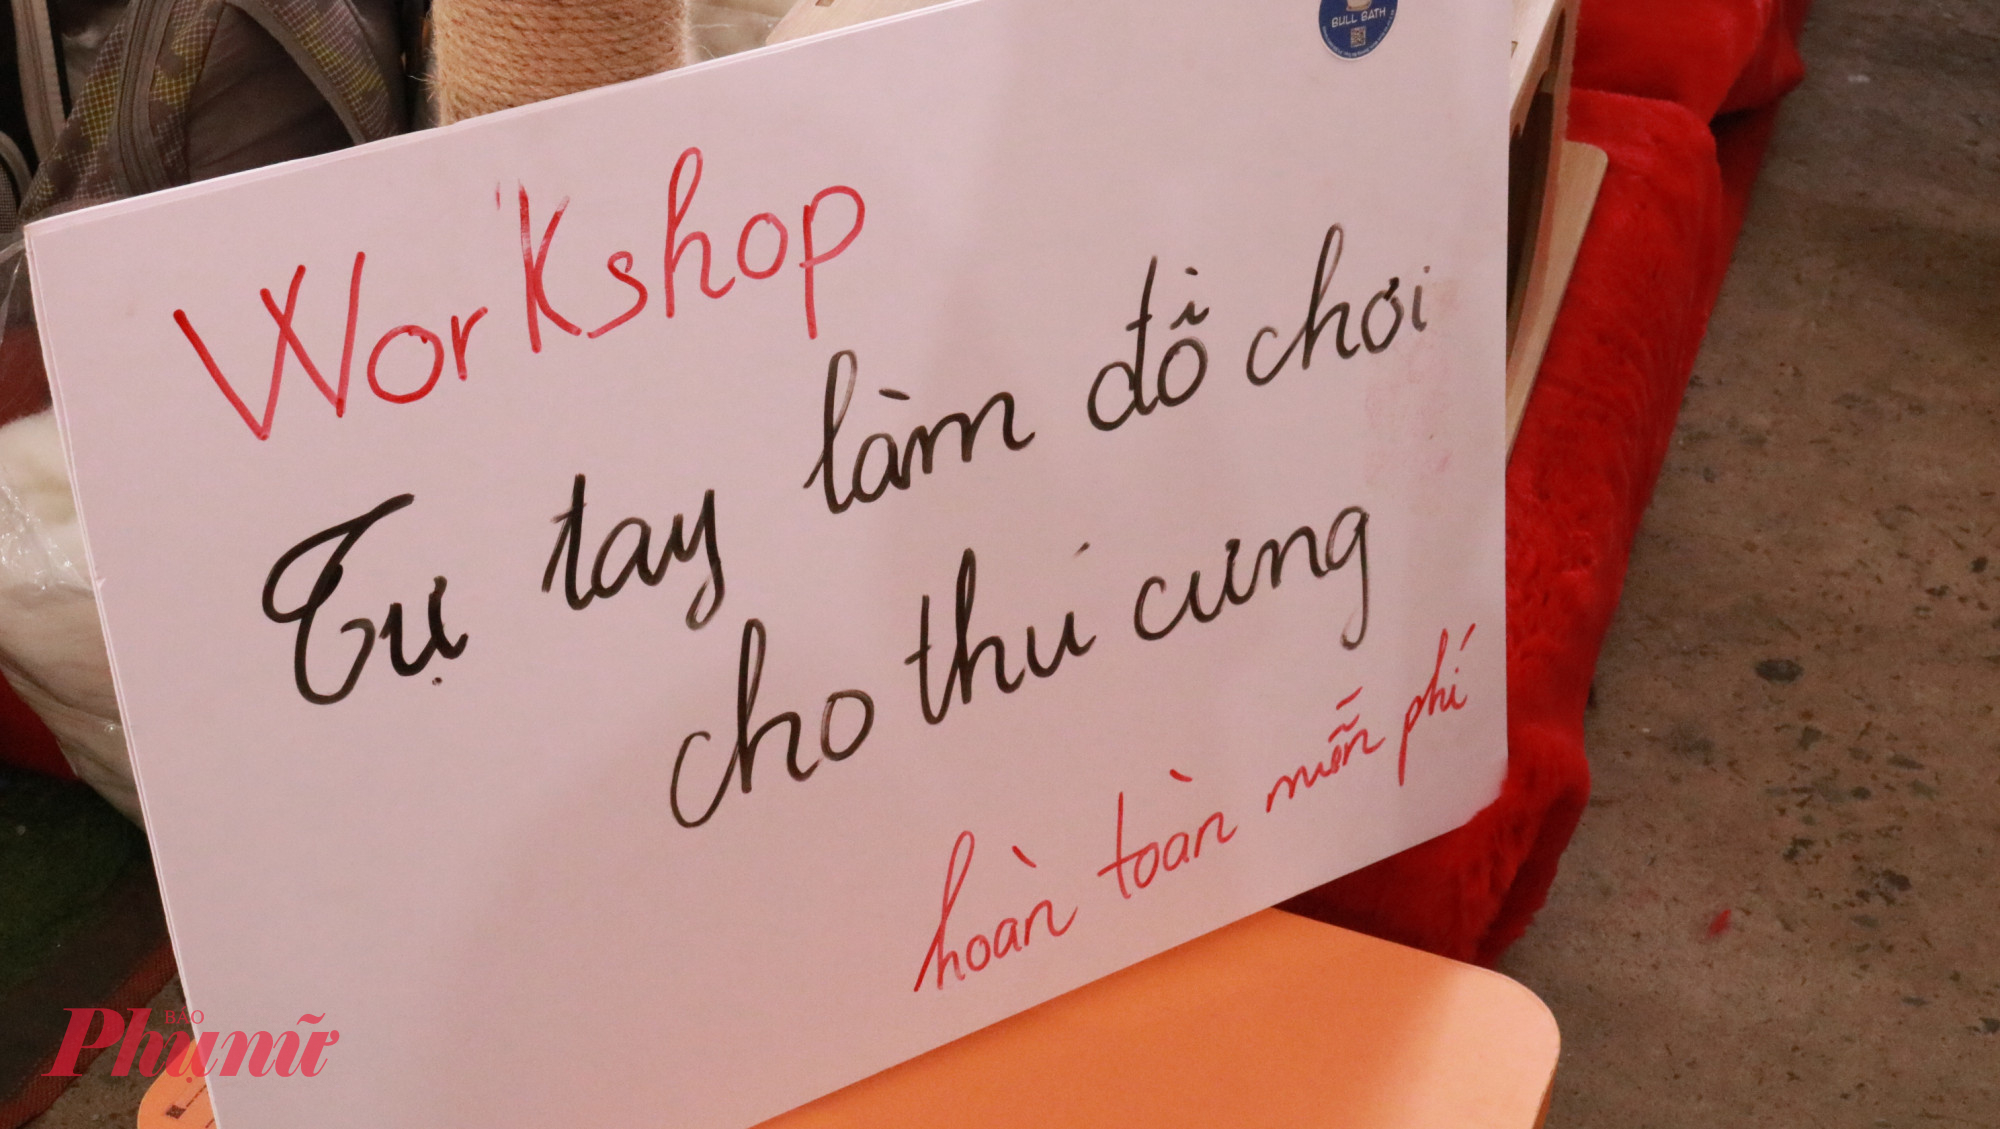 BULL BATH
Workshop
Tự tay làm đồ chơi
cho thú cưng
hoàn toàn miễn phí
BÁO
Phụ nữ